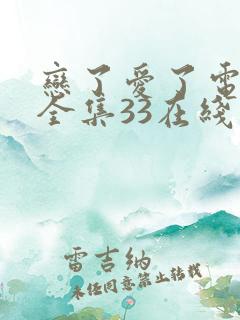 戀了愛了電
全集33在綫
雷吉納
未經同意禁止轉載